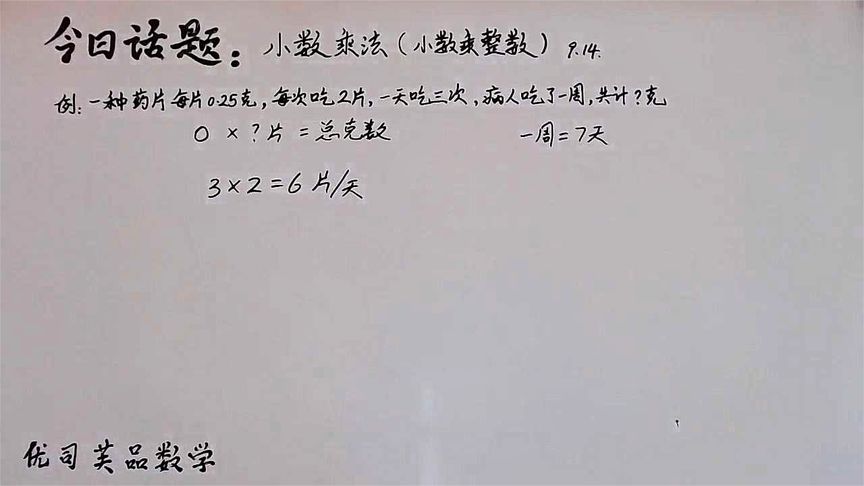 今日话题：小数乘法（小数乘整数）9.14.
例：一种药片每片0.25克，每次吃2片，一天吃三次，病人吃了一周，共计？克
0 × ? 片 = 总克数 一周=7天
3×2=6 片/天
优司芙品数学